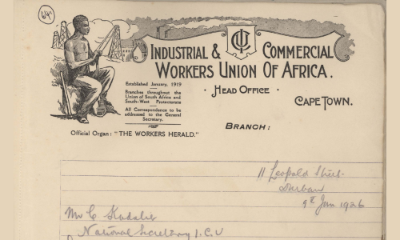 INDUSTRIAL & ICU COMMERCIAL
WORKERS UNION OF AFRICA.
· HEAD OFFICE ·
CAPE TOWN.
Established January, 1919
Branches throughout the
Union of South Africa and
South-West Protectorate
All Correspondence to be
addressed to the General
Secretary.
Official Organ: "THE WORKERS HERALD."
BRANCH:
11 Leopold Street
Durban
9th Jan 1926
Mr C Kadalie
National Secretary I.C.U